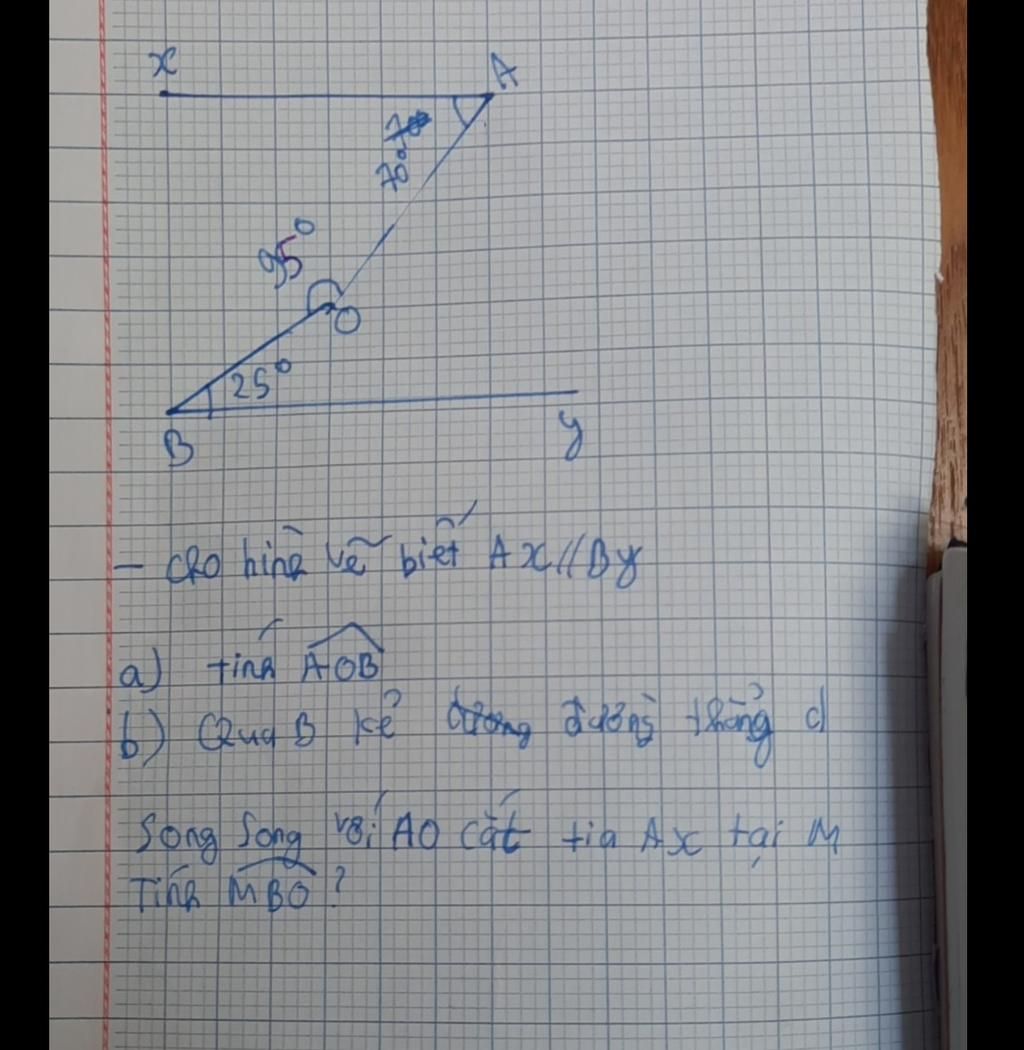 x
A
70°
95°
O
25°
B
y
- Cho hình vẽ biết Ax//By
a) tính AOB
b) Qua B kẻ đường đường thẳng d
Song Song với AO cắt tia Ax tại M
Tính MBO?